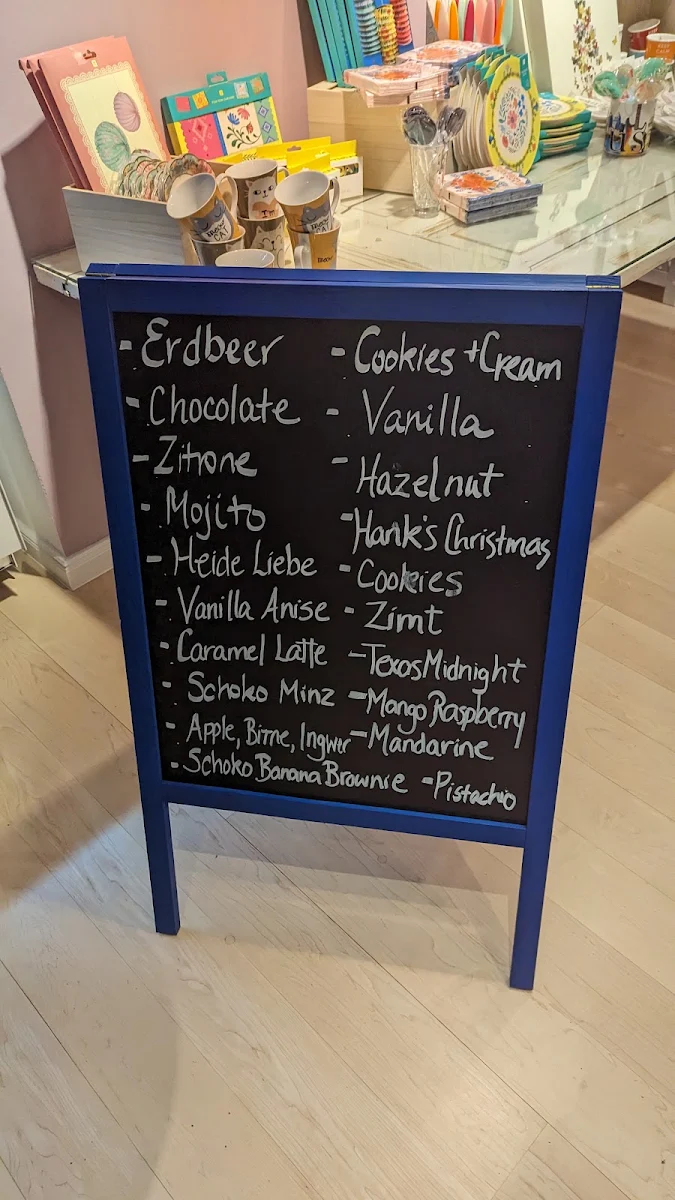 - Erdbeer
- Chocolate
- Zitrone
- Mojito
- Heide Liebe
- Vanilla Anise
- Caramel Latte
- Schoko Minz
- Apple, Birne, Ingwer
- Schoko Banana Brownie
- Cookies + Cream
- Vanilla
- Hazelnut
- Hank's Christmas
- Cookies
- Zimt
- Texas Midnight
- Mango Raspberry
- Mandarine
- Pistachio